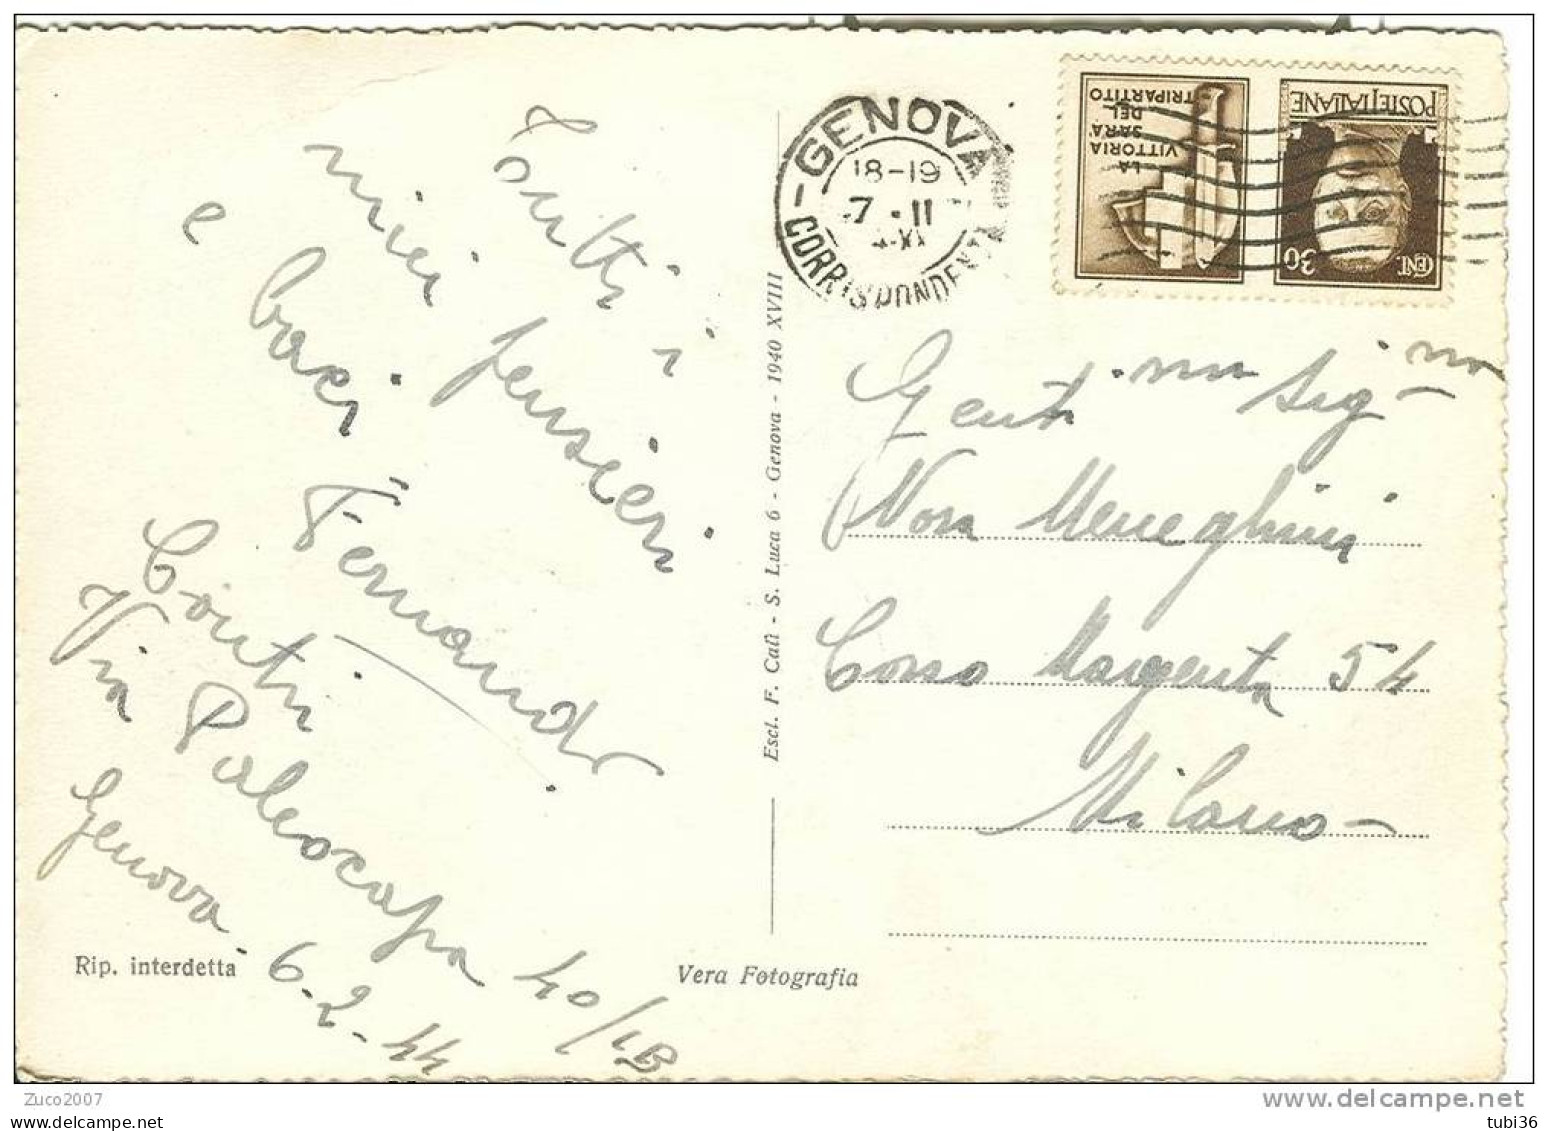 Tutti i
miei pensieri
e baci
Fernando
Conti
Via Paleocapa 40/1B
Genova 6-2-44
Rip. interdetta
Vera Fotografia
Escl. F. Calì - S. Luca 6 - Genova - 1940 XVIII
GENOVA
18-19
7 · II
CORRISPONDENZA
LA
VITTORIA
SARÀ
DEL
TRIPARTITO
POSTE ITALIANE
CENT. 30
Gent.ma Sig.na
Nora Meneghini
Corso Magenta 54
Milano
Zuco2007
www.delcampe.net
tubi36